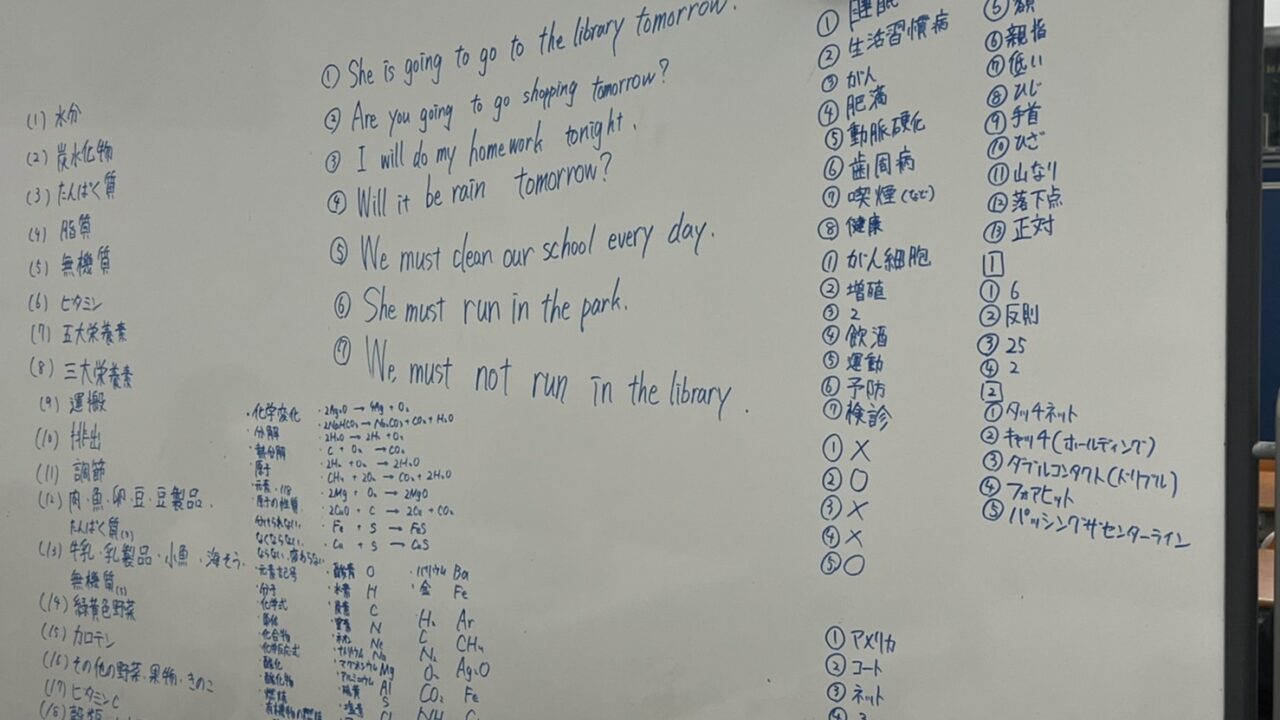 (1) 水分
(2) 炭水化物
(3) たんぱく質
(4) 脂質
(5) 無機質
(6) ビタミン
(7) 五大栄養素
(8) 三大栄養素
(9) 運搬
(10) 排出
(11) 調節
(12) 肉・魚・卵・豆・豆製品.
たんぱく質
(13) 牛乳・乳製品・小魚・海そう.
無機質
(14) 緑黄色野菜
(15) カロテン
(16) その他の野菜・果物・きのこ
(17) ビタミンC
(18) 穀類
① She is going to go to the library tomorrow.
② Are you going to go shopping tomorrow?
③ I will do my homework tonight.
④ Will it be rain tomorrow?
⑤ We must clean our school every day.
⑥ She must run in the park.
⑦ We, must not run in the library.
・化学変化
・分解
・熱分解
・原子
・元素. 118
・原子の性質
分けられない
なくならない
ならない.変わらない
・元素記号
・分子
・化学式
・単体
・化合物
・化学反応式
・酸化
・酸化物
・燃焼
・有機物の燃焼
・2NaHCO₃ → Na₂CO₃ + CO₂ + H₂O
・2H₂O → 2H₂ + O₂
・C + O₂ → CO₂
・2H₂ + O₂ → 2H₂O
・CH₄ + 2O₂ → CO₂ + 2H₂O
・2Mg + O₂ → 2MgO
・2CuO + C → 2Cu + CO₂
・Fe + S → FeS
・Cu + S → CuS
・酸素 O
・水素 H
・炭素 C
・窒素 N
・ネオン Ne
・ナトリウム Na
・マグネシウム Mg
・アルミニウム Al
・硫黄 S
・塩素 Cl
・バリウム Ba
・金 Fe
H₂ Ar
C CH₄
N₂
O₂ Ag₂O
CO₂ Fe
NH
① 睡眠
② 生活習慣病
③ がん
④ 肥満
⑤ 動脈硬化
⑥ 歯周病
⑦ 喫煙(など)
⑧ 健康
① がん細胞
② 増殖
③ 2
④ 飲酒
⑤ 運動
⑥ 予防
⑦ 検診
① ×
② ○
③ ×
④ ×
⑤ ○
① アメリカ
② コート
③ ネット
④ 3
⑤ 額
⑥ 親指
⑦ 低い
⑧ ひじ
⑨ 手首
⑩ ひざ
⑪ 山なり
⑫ 落下点
⑬ 正対
1
① 6
② 反則
③ 25
④ 2
2
① タッチネット
② キャッチ(ホールディング)
③ ダブルコンタクト(ドリブル)
④ フォアヒット
⑤ パッシングザセンターライン